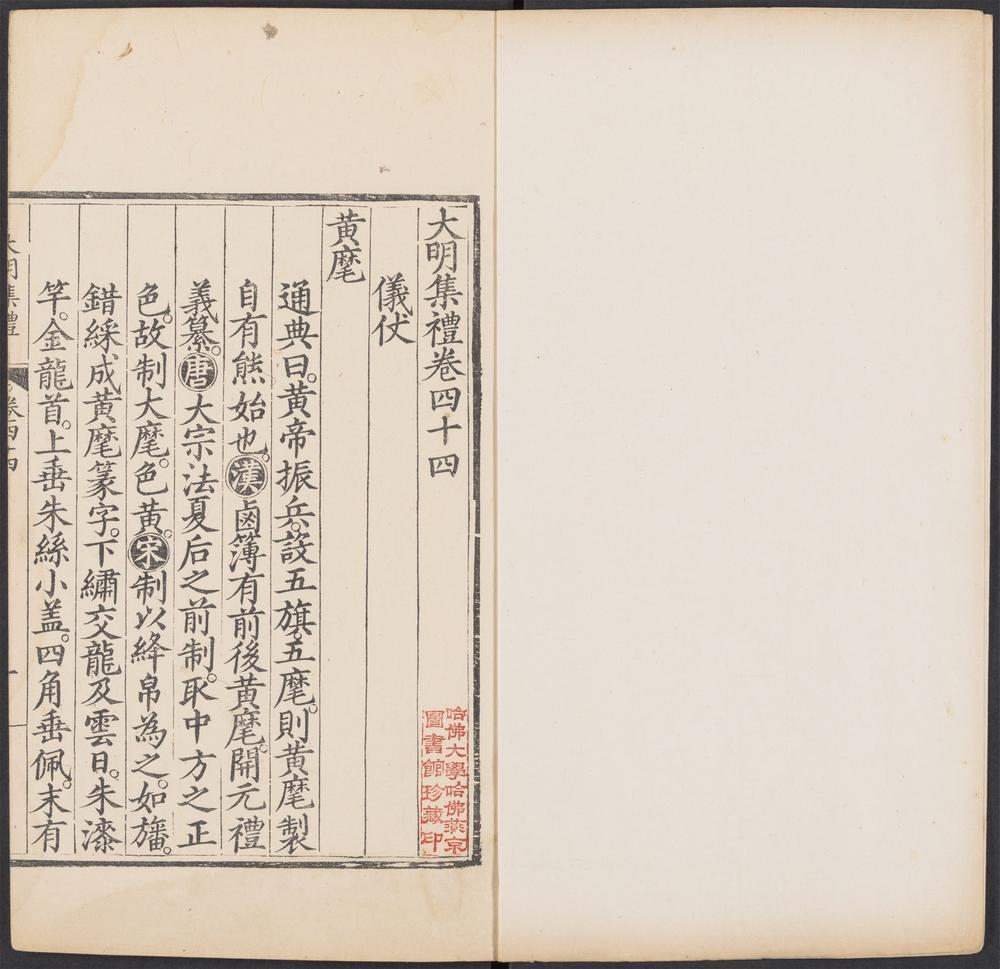 大明集禮卷四十四
儀仗
黃麾
通典曰。黃帝振兵。設五旗。五麾。則黃麾製
自有熊始也。漢鹵簿有前後黃麾。開元禮
義纂。唐大宗法夏后之前制。取中方之正
色。故制大麾。色黃。宋制以絳帛為之。如旛。
錯綵成黃麾篆字。下繡交龍及雲日。朱漆
竿。金龍首。上垂朱絲小盖。四角垂佩。末有
大明集禮
卷四十四
一
哈佛大學哈佛燕京
圖書館珍藏印